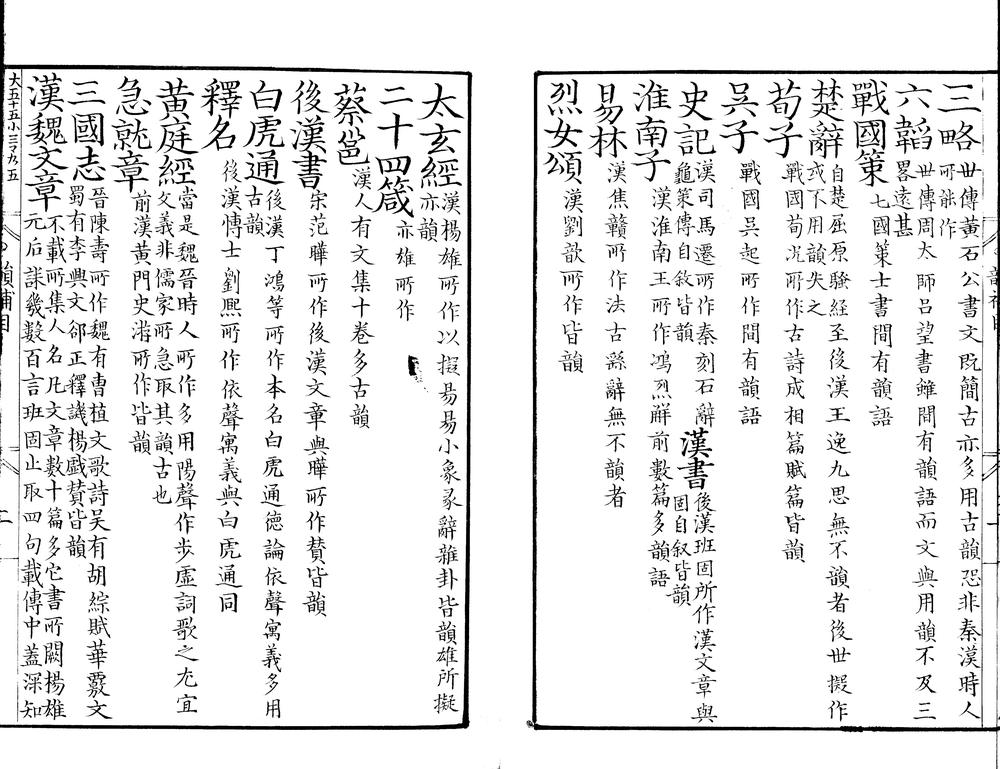 三略世傳黃石公書文旣簡古亦多用古韻恐非秦漢時人
所能作
六韜世傳周太師吕望書雖間有韻語而文與用韻不及三
畧遠甚
戰國策七國策士書間有韻語
楚辭自楚屈原騷經至後漢王逸九思無不韻者後世擬作
或不用韻失之
荀子戰國荀况所作古詩成相篇賦篇皆韻
吳子戰國吳起所作間有韻語
史記漢司馬遷所作秦刻石辭
龜策傳自敘皆韻
漢書後漢班固所作漢文章與
固自叙皆韻
淮南子漢淮南王所作鴻烈解前數篇多韻語
易林漢焦贛所作法古繇辭無不韻者
烈女頌漢劉歆所作皆韻
太玄經漢楊雄所作以掇易易小象彖辭雜卦皆韻雄所擬
亦韻
二十四箴亦雄所作
蔡邕漢人有文集十卷多古韻
後漢書宋范曄所作後漢文章與曄所作賛皆韻
白虎通後漢丁鴻等所作本名白虎通德論依聲寓義多用
古韻
釋名後漢博士劉熙所作依聲寓義與白虎通同
黄庭經當是魏晉時人所作多用陽聲作步虛詞歌之尤宜
文義非儒家所急取其韻古也
急就章前漢黄門史游所作皆韻
三國志晉陳壽所作魏有曹植文歌詩吴有胡綜賦華覈文
蜀有李興文郤正釋譏楊戲賛皆韻
漢魏文章不載所集人名凡文章數十篇多它書所闕楊雄
元后誄幾數百言班固止取四句載傳中蓋深知
韻補目